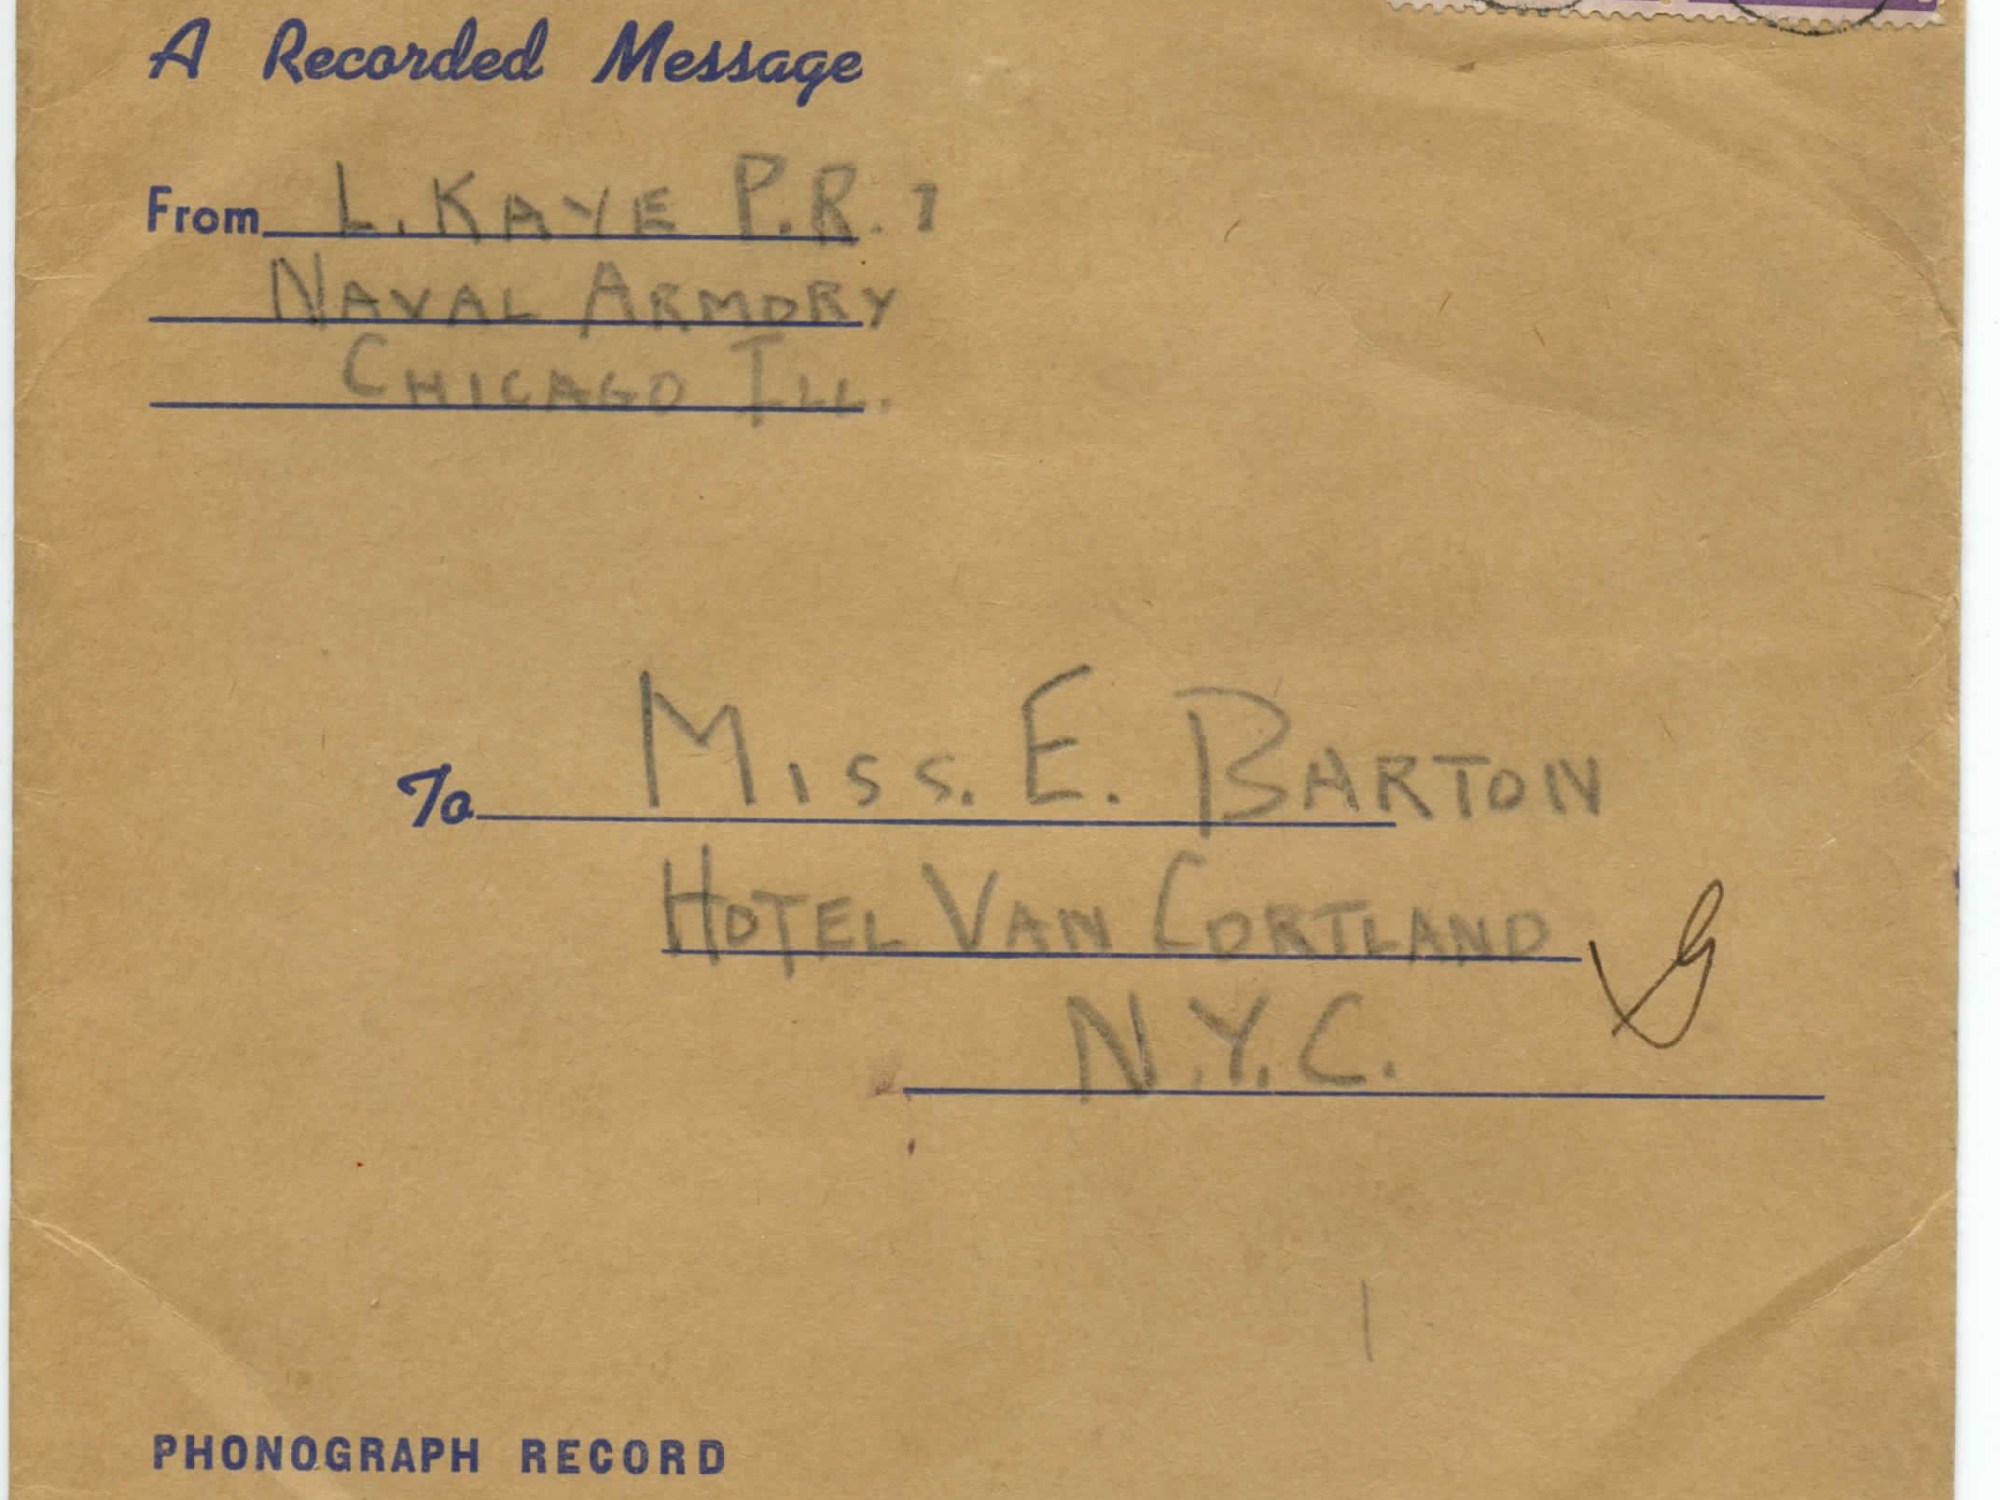 A Recorded Message
From L. KAYE P.R. 1
NAVAL ARMORY
CHICAGO ILL.
To MISS. E. BARTON
HOTEL VAN CORTLAND
N.Y.C.
PHONOGRAPH RECORD